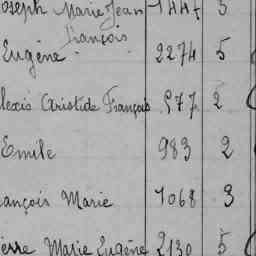 oseph Marie Jean 1447 5
François
Eugène 2274 5
lexis Aristide François 577 2
Emile 983 2
ançois Marie 1068 3
ierre Marie Eugène 2130 5